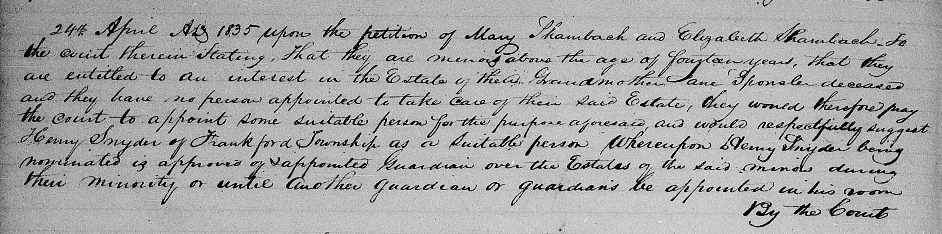 24th April AD 1835 upon the petition of Mary Shambach and Elizabeth Shambach To
the court therein Stating, That they are minors above the age of fourteen years, that they
are entitled to an interest in the Estate of their Grandmother Jane Sponsler deceased
and they have no person appointed to take care of their said Estate, they would therefore pray
the court to appoint some suitable person for the purpose aforesaid, and would respectfully suggest
Henry Snyder of Frankford Township as a suitable person Whereupon Henry Snyder being
nominated is approved of & appointed Guardian over the Estates of the said minors during
their minority or until another guardian or guardians be appointed in his room
By the Court